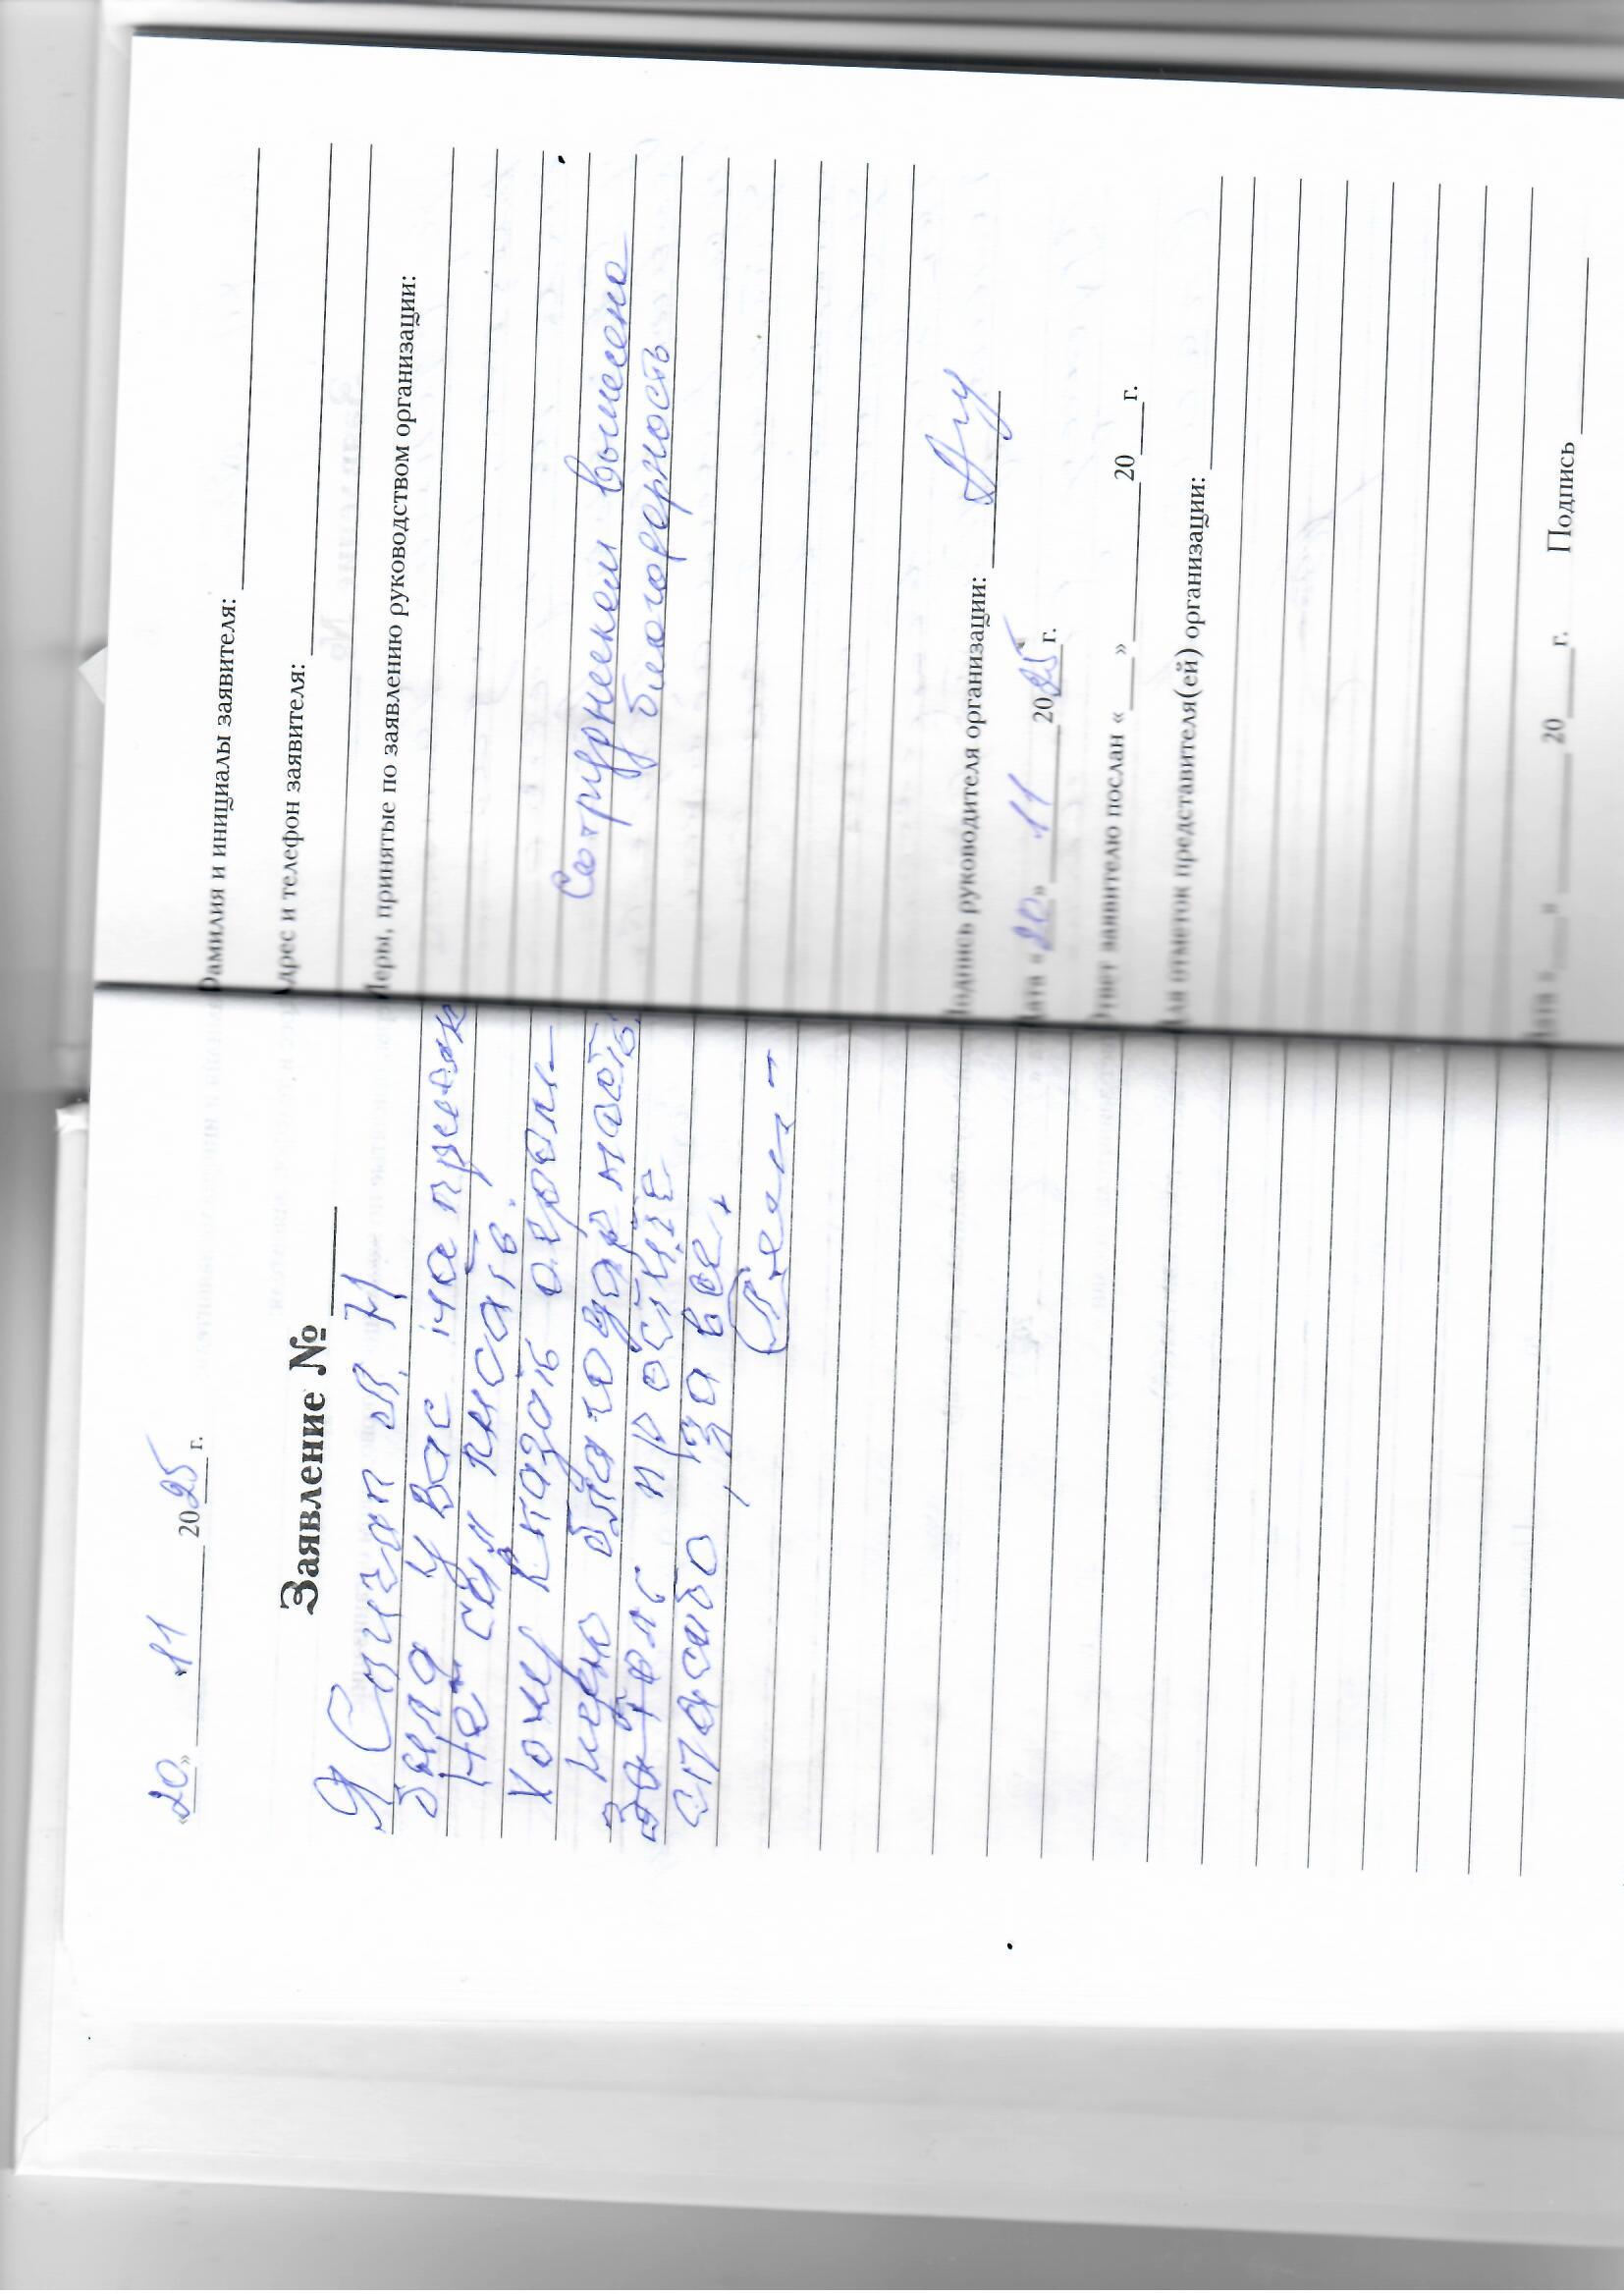 «20» 11 2025 г.
Заявление № ____
Я В. Н
была у Вас на прием
Нет сил писать.
Хочу сказать огром-
ную благодарность.
За простите
спасибо за все.
Фамилия и инициалы заявителя:
Адрес и телефон заявителя:
Меры, принятые по заявлению руководством организации:
Сотрудникам вынесена
благодарность
Подпись руководителя организации:
Дата «20» 11 2025 г.
Ответ заявителю послан «____» ____ 20____ г.
Для отметок представителя(ей) организации:
Дата «____» ____ 20____ г. Подпись ____